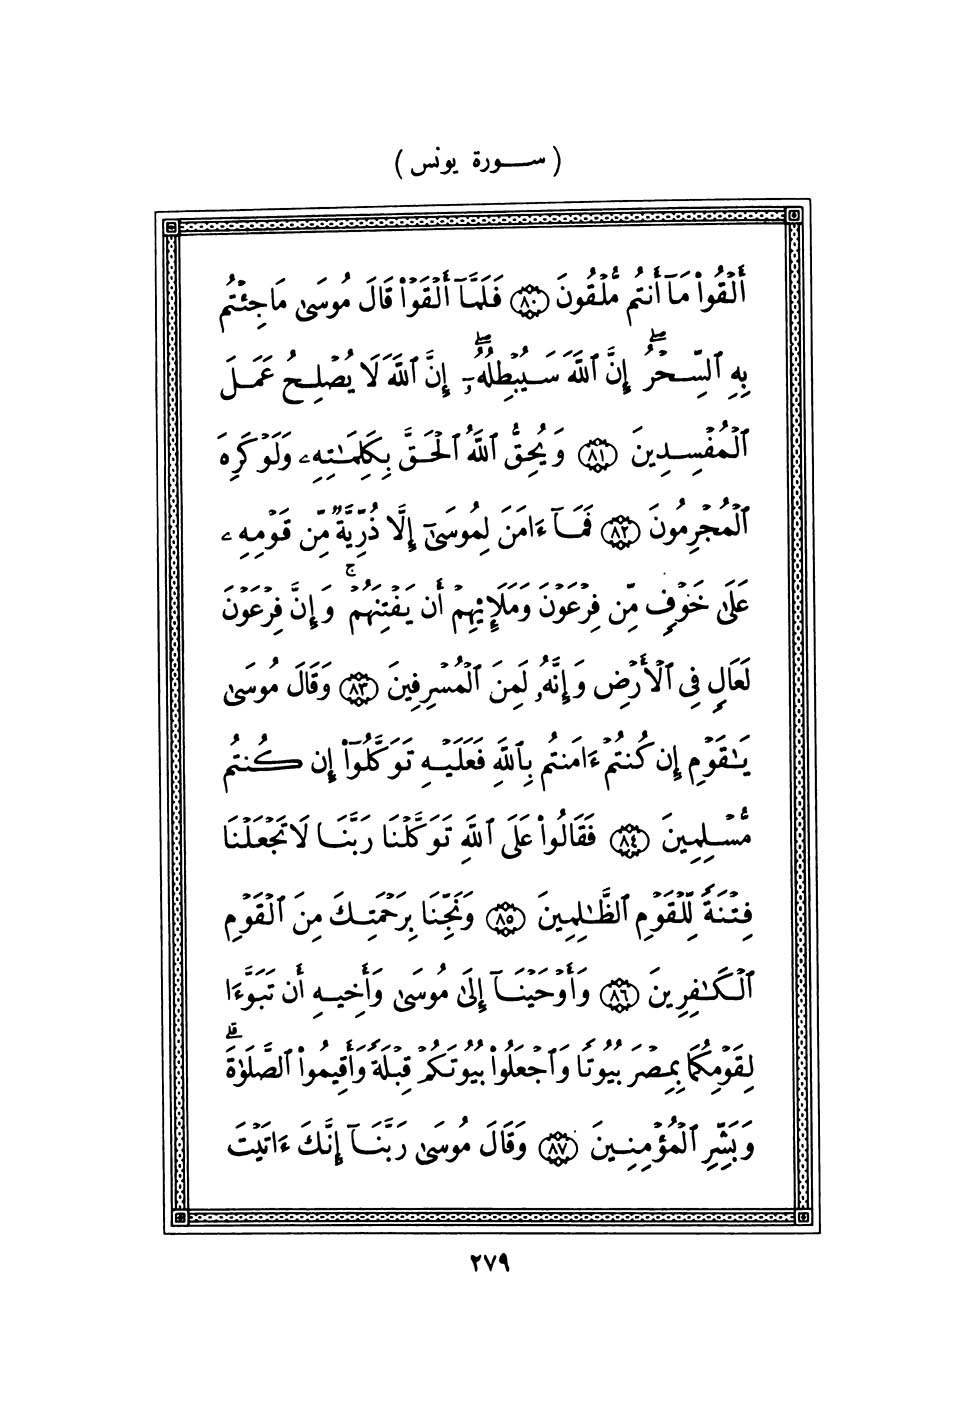 ( ســورة يونس )
أَلْقُوا۟ مَآ أَنتُم مُّلْقُونَ ۝٨٠ فَلَمَّآ أَلْقَوْا۟ قَالَ مُوسَىٰ مَا جِئْتُم
بِهِ ٱلسِّحْرُ ۖ إِنَّ ٱللَّهَ سَيُبْطِلُهُۥٓ ۖ إِنَّ ٱللَّهَ لَا يُصْلِحُ عَمَلَ
ٱلْمُفْسِدِينَ ۝٨١ وَيُحِقُّ ٱللَّهُ ٱلْحَقَّ بِكَلِمَـٰتِهِۦ وَلَوْ كَرِهَ
ٱلْمُجْرِمُونَ ۝٨٢ فَمَآ ءَامَنَ لِمُوسَىٰٓ إِلَّا ذُرِّيَّةٌ مِّن قَوْمِهِۦ
عَلَىٰ خَوْفٍ مِّن فِرْعَوْنَ وَمَلَإِي۟هِمْ أَن يَفْتِنَهُمْ ۚ وَإِنَّ فِرْعَوْنَ
لَعَالٍ فِى ٱلْأَرْضِ وَإِنَّهُۥ لَمِنَ ٱلْمُسْرِفِينَ ۝٨٣ وَقَالَ مُوسَىٰ
يَـٰقَوْمِ إِن كُنتُمْ ءَامَنتُم بِٱللَّهِ فَعَلَيْهِ تَوَكَّلُوٓا۟ إِن كُنتُم
مُّسْلِمِينَ ۝٨٤ فَقَالُوا۟ عَلَى ٱللَّهِ تَوَكَّلْنَا رَبَّنَا لَا تَجْعَلْنَا
فِتْنَةً لِّلْقَوْمِ ٱلظَّـٰلِمِينَ ۝٨٥ وَنَجِّنَا بِرَحْمَتِكَ مِنَ ٱلْقَوْمِ
ٱلْكَـٰفِرِينَ ۝٨٦ وَأَوْحَيْنَآ إِلَىٰ مُوسَىٰ وَأَخِيهِ أَن تَبَوَّءَا
لِقَوْمِكُمَا بِمِصْرَ بُيُوتًا وَٱجْعَلُوا۟ بُيُوتَكُمْ قِبْلَةً وَأَقِيمُوا۟ ٱلصَّلَوٰةَ ۗ
وَبَشِّرِ ٱلْمُؤْمِنِينَ ۝٨٧ وَقَالَ مُوسَىٰ رَبَّنَآ إِنَّكَ ءَاتَيْتَ
٢٧٩